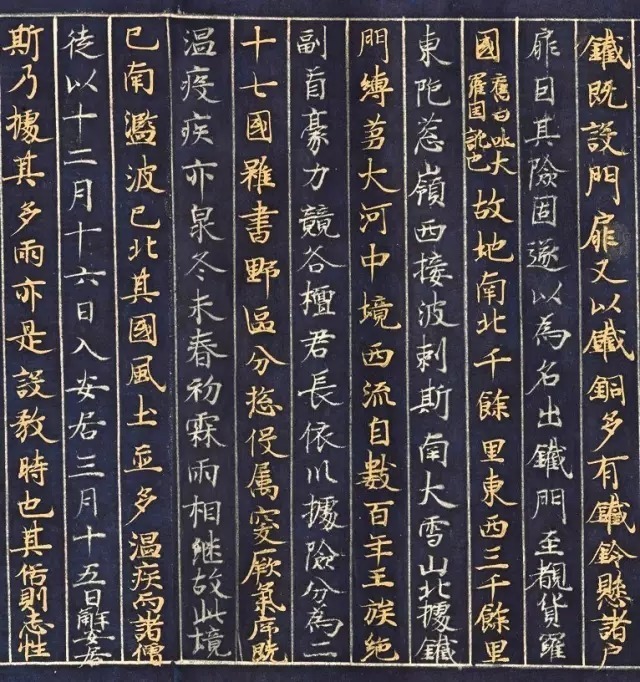 鐵既設門扉又以鐵銅多有鐵鈴懸諸户
扉因其險固遂以為名出鐵門至覩貨羅
國舊曰吐火羅国訛也故地南北千餘里東西三千餘里
東阨葱嶺西接波剌斯南大雪山北據鐵
門縛芻大河中境西流自數百年王族絶
副首豪力競各檀君長依川據險分為二
十七國雖書野區分揔役属突厥氣序既
温疫疾亦衆冬末春初霖雨相継故此境
已南濫波已北其國風土並多温疾而諸僧
徒以十二月十六日入安居三月十五日解安居
斯乃據其多雨亦是設教時也其俗則志性